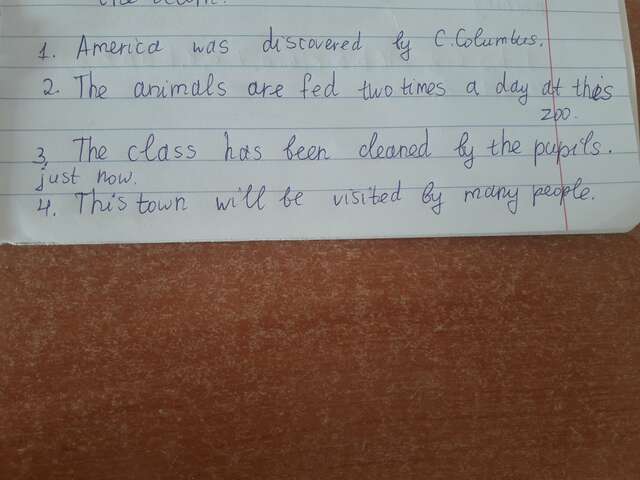 1. America was discovered by C. Columbus.
2. The animals are fed two times a day at this
zoo.
3. The class has been cleaned by the pupils.
just now.
4. This town will be visited by many people.